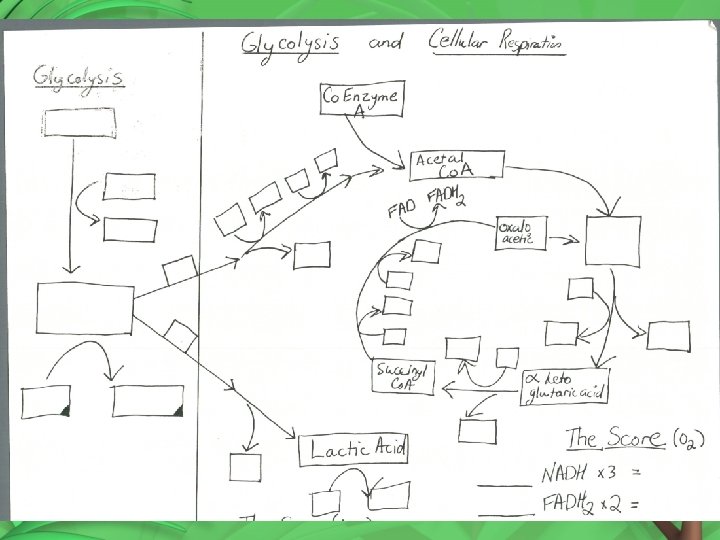 Glycolysis and Cellular Respiration
Glycolysis
CoEnzyme
A
Acetal
CoA
FAD FADH2
oxalo
acetic
Succinyl
CoA
α keto
glutaric acid
Lactic Acid
The Score (O2)
NADH x3 =
FADH2 x2 =